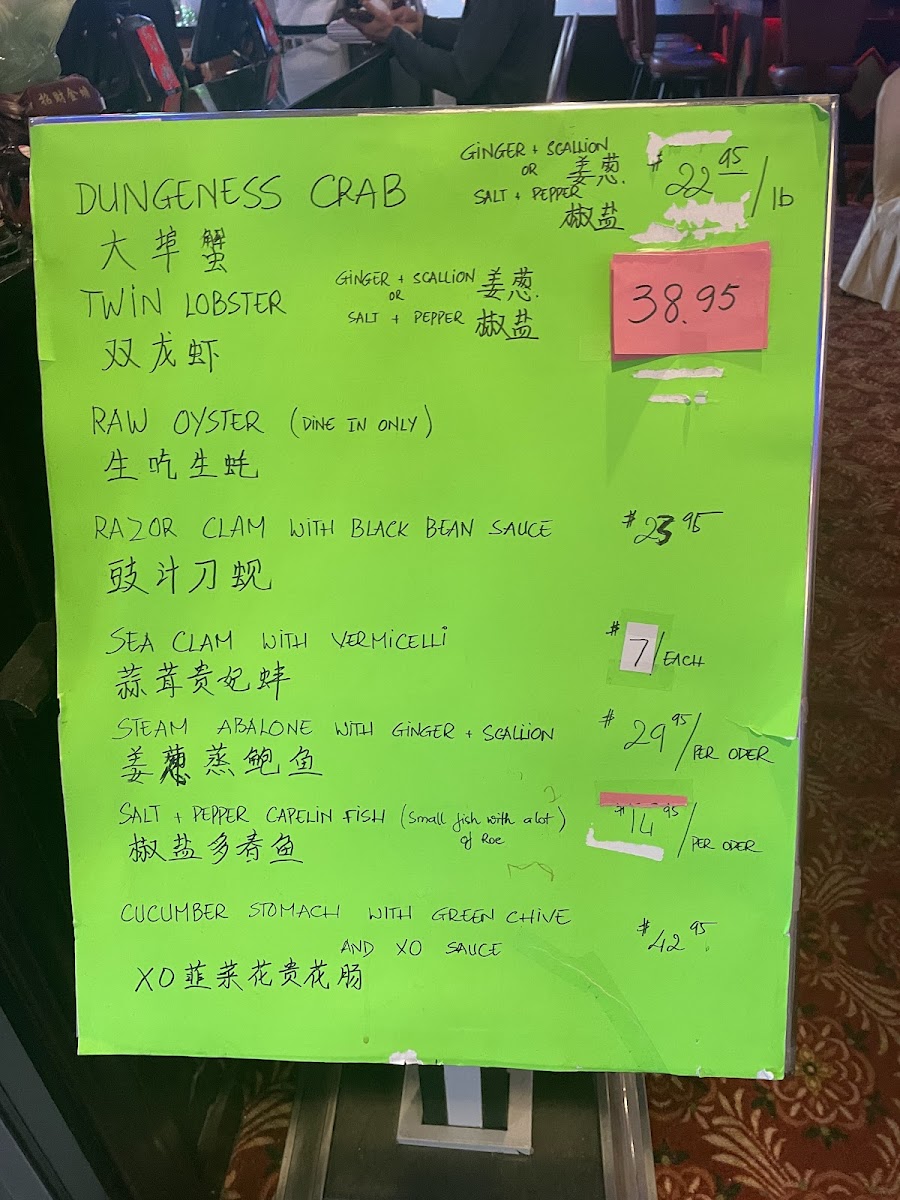 招财金蟾
DUNGENESS CRAB GINGER + SCALLION OR 姜葱. SALT + PEPPER 椒盐 $22.95/lb
大埠蟹
TWIN LOBSTER GINGER + SCALLION 姜葱. OR SALT + PEPPER 椒盐 38.95
双龙虾
RAW OYSTER (DINE IN ONLY)
生吃生蚝
RAZOR CLAM WITH BLACK BEAN SAUCE $23.95
豉汁刀蚬
SEA CLAM WITH VERMICELLI $7/EACH
蒜茸贵妃蚌
STEAM ABALONE WITH GINGER + SCALLION $29.95/PER ODER
姜葱蒸鲍鱼
SALT + PEPPER CAPELIN FISH (Small fish with a lot of Roe) $14.95/PER ODER
椒盐多春鱼
CUCUMBER STOMACH WITH GREEN CHIVE $42.95
AND XO SAUCE
XO韮菜花贵花肠